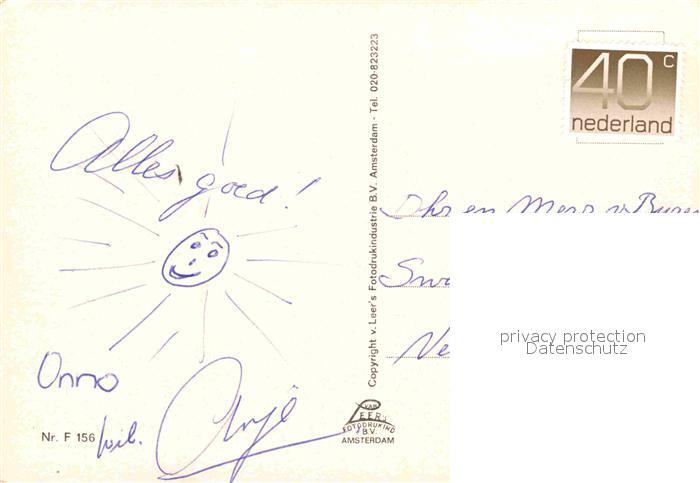 Alles goed!
Onno
Anjé
Nr. F 156
Copyright v. Leer's Fotodrukindustrie B.V. Amsterdam - Tel. 020-823223
VAN
LEER'S
FOTODRUKIND
B.V.
AMSTERDAM
40 c
nederland
Dhr en Mevr v Buren
privacy protection
Datenschutz